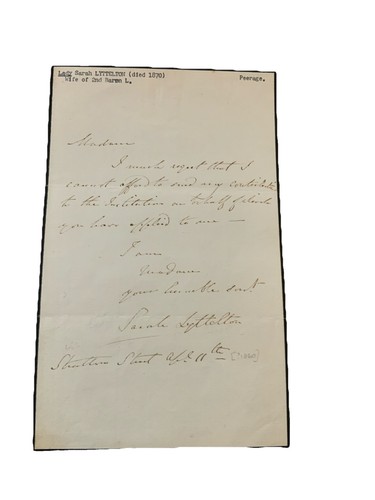 Lady Sarah LYTTELTON (died 1870)
Wife of 2nd Baron L.
Peerage.
Madam
I much regret that I
cannot afford to send any contribution
to the Institution on behalf of which
you have applied to me —
I am
Madam
your humble servt
Sarah Lyttelton
Stratton Street 11th